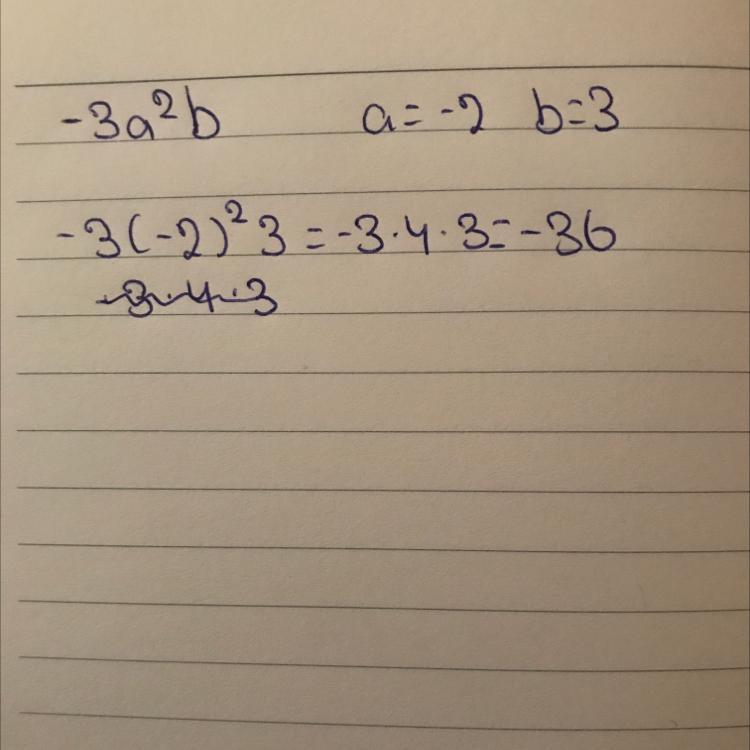 -3a²b a=-2 b=3
-3(-2)²3=-3·4·3=-36
-3·4·3